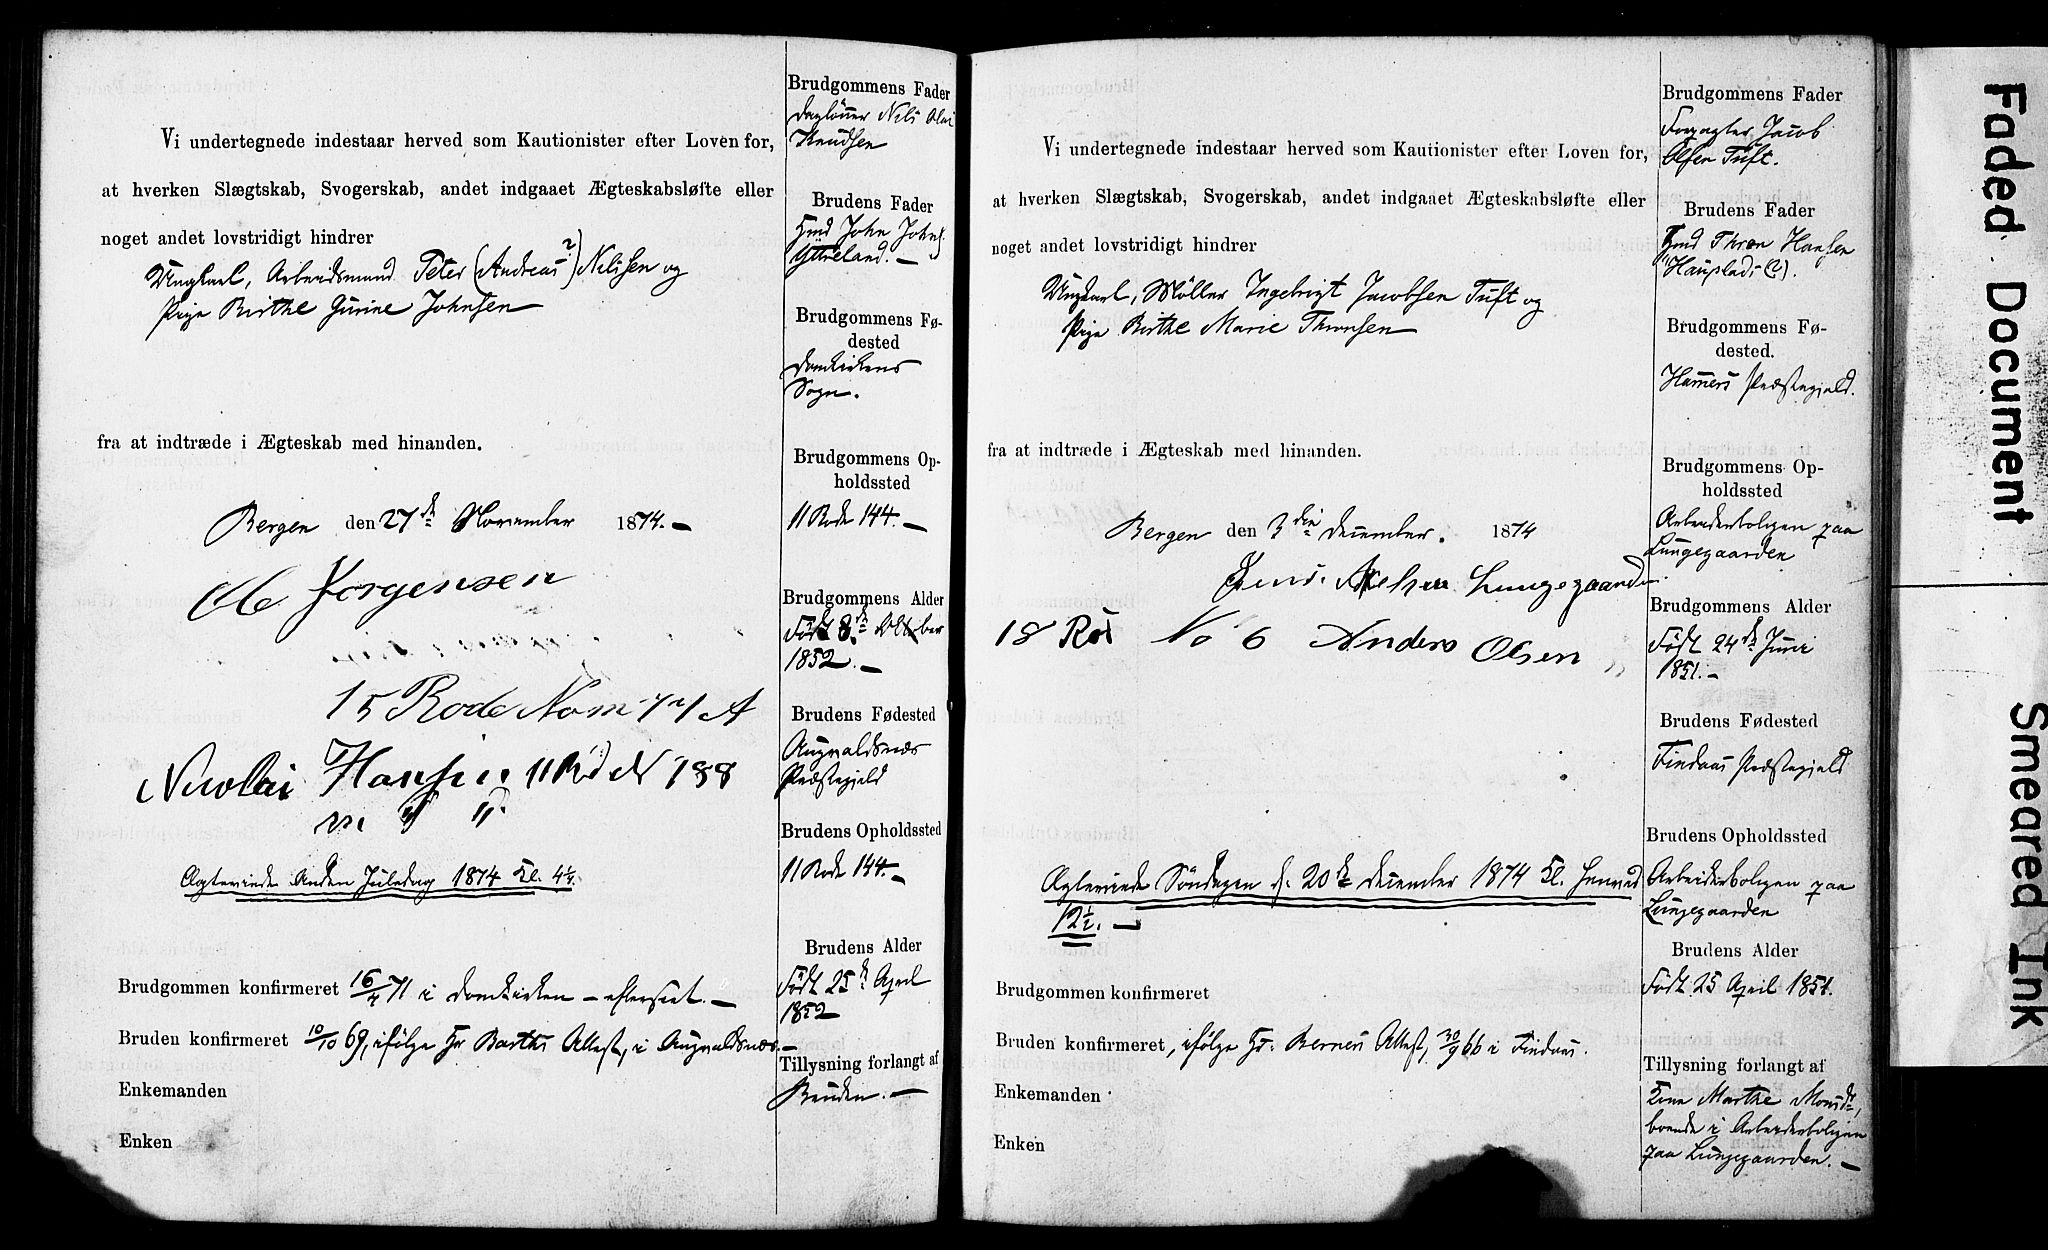 Vi undertegnede indestaar herved som Kautionister efter Loven for,
at hverken Slægtskab, Svogerskab, andet indgaaet Ægteskabsløfte eller
noget andet lovstridigt hindrer
Ungkarl, Arbeidsmand Peter (Andreas?) Nilssen og
Pige Birthe Gurine Johnsen
fra at indtræde i Ægteskab med hinanden.
Bergen den 27de November 1874.
Ole Jørgensen
15 Rode Nom
Nicolai Hansen 11 Rode No 188
m. p. p.
Ægteviede Anden Juledag 1874 Kl. 4½.
Brudgommen konfirmeret 16/4 71 i Domkirken – efterseet. –
Bruden konfirmeret 10/10 69, ifølge Hr Barths Attest, i Augvaldsnæs. –
Enkemanden
Enken
Brudgommens Fader
Dagløner Nils Olai
Knudsen
Brudens Fader
Hmd John Johns.
Ytreland. –
Brudgommens Fø-
dested
Domkirkens
Sogn.
Brudgommens Op-
holdssted
11 Rode 144. –
Brudgommens Alder
Født 8de Oktober
1852. –
Brudens Fødested
Augvaldsnæs
Præstegjeld
Brudens Opholdssted
11 Rode 144. –
Brudens Alder
Født 25de April
1852
Tillysning forlangt af
Bruden. –
Vi undertegnede indestaar herved som Kautionister efter Loven for,
at hverken Slægtskab, Svogerskab, andet indgaaet Ægteskabsløfte eller
noget andet lovstridigt hindrer
Ungkarl, Møller Ingebrigt Jacobsen Tuft og
Pige Birthe Marie Thronsen
fra at indtræde i Ægteskab med hinanden.
Bergen den 3die December. 1874
Lungegaarden
18 Rod No 6 Anders Olsen
Ægteviede Søndagen d. 20de December 1874 Kl. henved
12½. –
Brudgommen konfirmeret
Bruden konfirmeret, ifølge Hr. Berners Attest, 30/9 66 i Findaas.
Enkemanden
Enken
Brudgommens Fader
Forpagter Jacob
Olsen Tuft.
Brudens Fader
Hmd Thron Hansen
Hauplads (?).
Brudgommens Fø-
dested.
Hammers Præstegjeld.
Brudgommens Op-
holdssted
Arbeiderboligen paa
Lungegaarden
Brudgommens Alder
Født 24de Juni
1851. –
Brudens Fødested
Findaas Præstegjeld
Brudens Opholdssted
Arbeiderboligen paa
Lungegaarden
Brudens Alder
Født 25 April 1851.
Tillysning forlangt af
Kone Marthe Monsdr,
boende i Arbeiderboligen
paa Lungegaarden. –
Faded Document
Smeared Ink